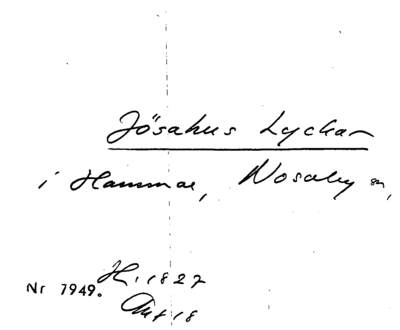 Jösahus Lyckan
i Hammar, Nosaby sn,
Nr 7949. H. 1827
Akt 18